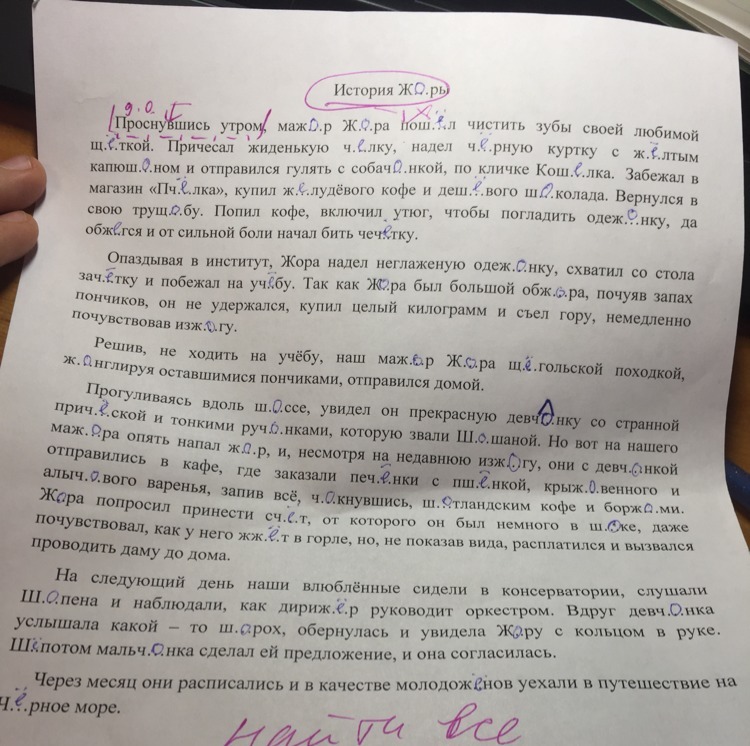 История ЖО.ры
д.о.
Проснувшись утром, мажо.р Ж.о.ра пош.ё.л чистить зубы своей любимой
щ.ё.ткой. Причесал жиденькую ч.ё.лку, надел ч.ё.рную куртку с ж.ё.лтым
капюш.о.ном и отправился гулять с собач.о.нкой, по кличке Кош.ё.лка. Забежал в
магазин «Пч.ё.лка», купил ж.ё.лудёвого кофе и деш.ё.вого ш.о.колада. Вернулся в
свою трущ.о.бу. Попил кофе, включил утюг, чтобы погладить одеж.о.нку, да
обж.ё.гся и от сильной боли начал бить чеч.ё.тку.
Опаздывая в институт, Жора надел неглаженую одеж.о.нку, схватил со стола
зач.ё.тку и побежал на уч.ё.бу. Так как Жо.ра был большой обж.о.ра, почуяв запах
пончиков, он не удержался, купил целый килограмм и съел гору, немедленно
почувствовав изж.о.гу.
Решив, не ходить на учёбу, наш маж.о.р Ж.о.ра щ.ё.гольской походкой,
ж.о.нглируя оставшимися пончиками, отправился домой.
Прогуливаясь вдоль ш.о.ссе, увидел он прекрасную девч.о.нку со странной
прич.ё.ской и тонкими руч.о.нками, которую звали Ш.о.шаной. Но вот на нашего
маж.о.ра опять напал ж.о.р, и, несмотря на недавнюю изж.о.гу, они с девч.о.нкой
отправились в кафе, где заказали печ.ё.нки с пш.ё.нкой, крыж.о.венного и
алыч.о.вого варенья, запив всё, ч.о.кнувшись, ш.о.тландским кофе и борж.о.ми.
Жо.ра попросил принести сч.ё.т, от которого он был немного в ш.о.ке, даже
почувствовал, как у него жж.ё.т в горле, но, не показав вида, расплатился и вызвался
проводить даму до дома.
На следующий день наши влюблённые сидели в консерватории, слушали
Ш.о.пена и наблюдали, как дириж.ё.р руководит оркестром. Вдруг девч.о.нка
услышала какой – то ш.о.рох, обернулась и увидела Жо.ру с кольцом в руке.
Шё.потом мальч.о.нка сделал ей предложение, и она согласилась.
Через месяц они расписались и в качестве молодож.ё.нов уехали в путешествие на
Ч.ё.рное море.
найти все